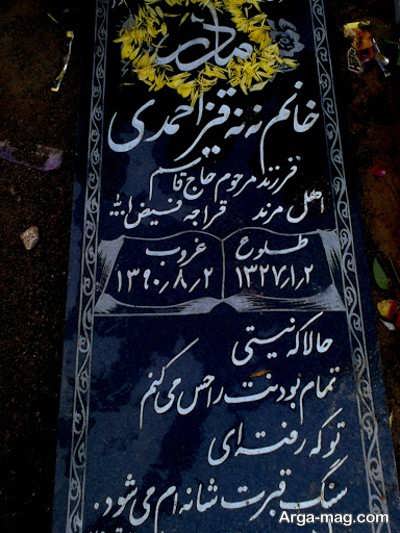 مادر
خانم ننه قیز احمدی
فرزند مرحوم حاج قاسم
اهل مرند قراجه فیض اله
طلوع غروب
۱۳۲۷/۱/۲ ۱۳۹۰/۸/۲
حالا که نیستی
تمام بودنت را حس می کنم
تو که رفته ای
سنگ قبرت شانه ام می شود.
Arga-mag.com